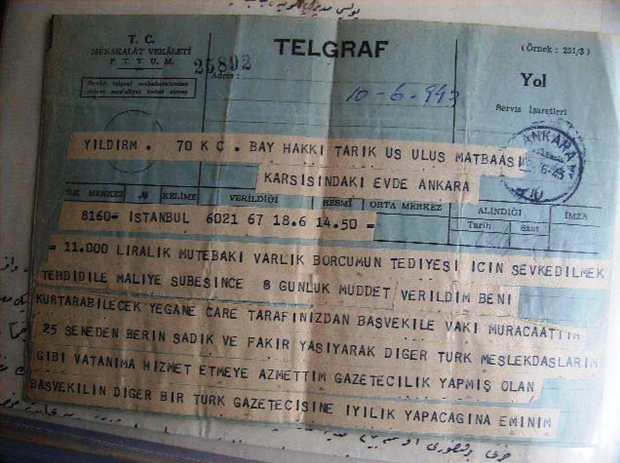 T. C.
MÜNAKALÂT VEKÂLETİ
P. T. T. U. M.
25892
TELGRAF
(Örnek : 251/3)
Adres :
Yol
Servis İşaretleri
10-6-943
ANKARA
YILDIRM . 70 K C . BAY HAKKI TARIK US ULUS MATBAASI
KARSISINDAKI EVDE ANKARA
MERKEZ KELİME VERİLDİĞİ RESMİ ORTA MERKEZ ALINDIĞI İMZA
Tarih Saat
8160= ISTANBUL 6021 67 18.6 14.50 =
= 11.000 LIRALIK MUTEBAKI VARLIK BORCUMUN TEDIYESI ICIN SEVKEDILMEK
TEHDIDILE MALIYE SUBESINCE 8 GUNLUK MUDDET VERILDIM BENI
KURTARABILECEK YEGANE CARE TARAFINIZDAN BASVEKILE VAKI MURACAATTIR
25 SENEDEN BERIN SADIK VE FAKIR YASIYARAK DIGER TURK MESLEKDASLARIM
GIBI VATANIMA HIZMET ETMEYE AZMETTIM GAZETECILIK YAPMIŞ OLAN
BAŞVEKILIN DIGER BIR TURK GAZETECISINE IYILIK YAPACAGINA EMINIM